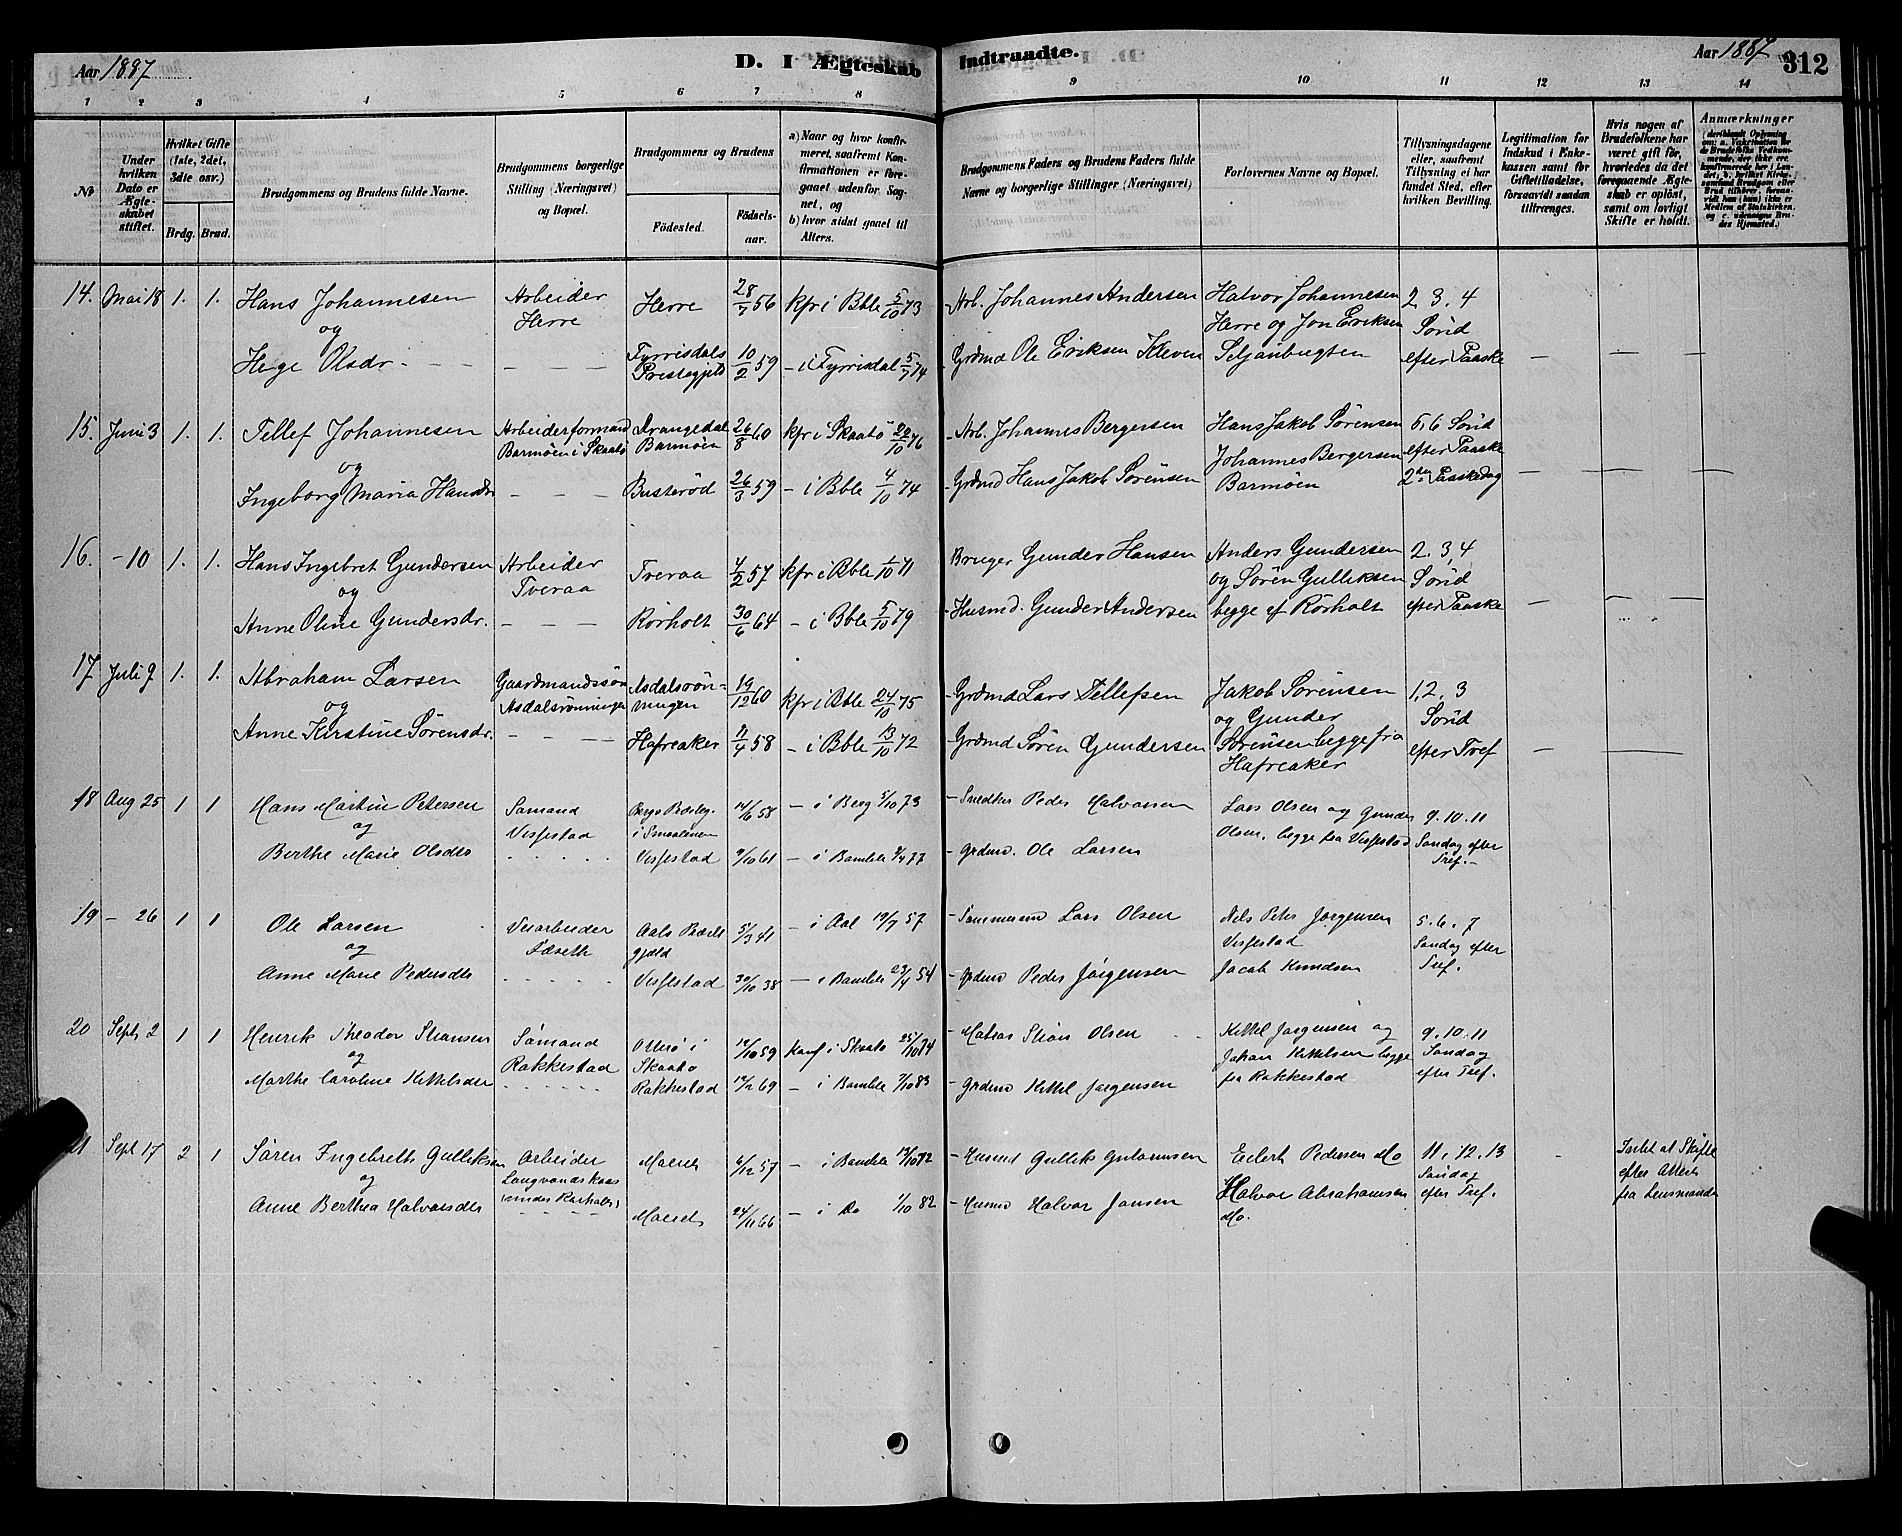 Aar 1887
D. I Ægteskab Indtraadte.
Aar 1887
312
1 2 3 4 5 6 7 8 9 10 11 12 13 14
No
Under hvilken Dato er Ægteskabet stiftet.
Hvilket Gifte (1ste, 2det, 3die osv.)
Brdg. Brud.
Brudgommens og Brudens fulde Navne.
Brudgommens borgerlige Stilling (Næringsvei) og Bopæl.
Brudgommens og Brudens
Fødested.
Fødselsaar.
a) Naar og hvor konfirmeret, saafremt Konfirmationen er foregaaet udenfor Sognet, og
b) hvor sidst gaaet til Alters.
Brudgommens Faders og Brudens Faders fulde Navne og borgerlige Stillinger (Næringsvei)
Forlovernes Navne og Bopæl.
Tillysningsdagene eller, saafremt Tillysning ei har fundet Sted, efter hvilken Bevilling.
Legitimation for Indskud i Enkekassen samt for Giftetilladelse, forsaavidt saadan tiltrænges.
Hvis nogen af Brudefolkene har været gift før, hvorledes da det foregaaende Ægteskab er opløst, samt om lovligt Skifte er holdt.
Anmærkninger
14. Mai 18 1. 1. Hans Johannesen Arbeider Herre 28/7 56 kfr i Bble 5/10 73 Arb. Johannes Andersen Halvor Johannesen 2. 3. 4
og Herre Herre og Jon Eriksen Sønd
Hege Olsdr. - - - - - Fyrrisdals Prestegjeld 10/2 59 - i Fyrrisdal 5/7 74 Grdmd Ole Eriksen Kleven Seljanbugten efter Paaske - - -
15. Juni 3 1. 1. Tellef Johannesen Arbeiderformand Drangedal 26/8 60 kfr i Skaatø 22/10 76 Arb. Johannes Bergersen Hans Jakob Sørensen 5, 6 Sønd
og Barmøen i Skaatø Barmøen Johannes Bergersen efter Paaske
Ingeborg Maria Hansdr - - - Busterød 26/3 59 - i Bble 4/10 74 Grdmd Hans Jakob Sørensen Barmøen 2den Paaskedag - - -
16. - 10 1. 1. Hans Ingebret Gundersen Arbeider Tveraa 4/2 57 kfr i Bble 1/10 71 Bruger Gunder Hansen Anders Gundersen 2, 3, 4
og Tveraa og Søren Gulliksen Sønd
Anne Oline Gundersdr. - - - Rørholt 30/6 64 - i Bble 5/10 79 - Husmd. Gunder Andersen begge af Rørholt efter Paaske - - -
17 Juli 9 1. 1. Abraham Larsen Gaardmandssøn Asdalsrønningen 19/12 60 kfr i Bble 24/10 75 Grdmd Lars Tellefsen Jakob Sørensen 1, 2, 3
og Asdalsrønningen og Gunder Sønd
Anne Kirstine Sørensdr. - - - Hafreaker 11/4 58 - i Bble 13/10 72 Grdmd Søren Gundersen Sørensen begge fra Hafreaker efter Tref - -
18 Aug 25 1 1 Hans Martin Petersen Sømand Bergs Præstegj. 14/6 58 - i Berg 5/10 73 Snedker Peder Halvorsen Lars Olsen og Gunder 9. 10. 11
og Visfestad i Smaalenene Olsen, begge fra Visfestad Søndag efter
Berthe Marie Olsdtr . . . . . Visfestad 9/10 61 - i Bamble 8/4 77 - grdmd. Ole Larsen Tref. -
19 - 26 1 1 Ole Larsen Veiarbeider Aals Præstegjeld 5/3 41 - i Aal 19/7 57 Lars Olsen Nils Peter Jørgensen 5. 6. 7
og Visfestad Søndag efter
Anne Marie Pedersdtr . . . . . Visfestad 30/10 38 - i Bamble 23/4 54 - grdmd Peder Jörgensen Jacob Knudsen Tref.
20 Septb 2 1 1 Henrik Theodor Stiansen Sømand Otterø i 12/10 59 Konf i Skaatø 25/10 74 - Matros Stian Olsen Kittel Jørgensen og 9. 10. 11
og Rakkestad Skaatø Johan Kittelsen begge Søndag
Marthe Caroline Kittelsdtr . . . . . Rakkestad 12/2 69 - i Bamble 7/10 83 - grdmd Kittel Jørgensen fra Rakkestad efter Tref.
21 Sept 17 2 1 Søren Ingebreth Gulliksen Arbeider 6/12 57 - i Bamble - Husmd Gullik Eilert Pedersen Mo 11. 12. 13 Intet at Skifte
og Langvandskaas Søndag efter Attest
Anne Berthea Halvorsdtr (under Rørholt) 24/11 66 - i Do 1/10 82 - Husmd Halvor Jansen Halvor Abrahamsen Mo. efter Tref. fra Lensmanden